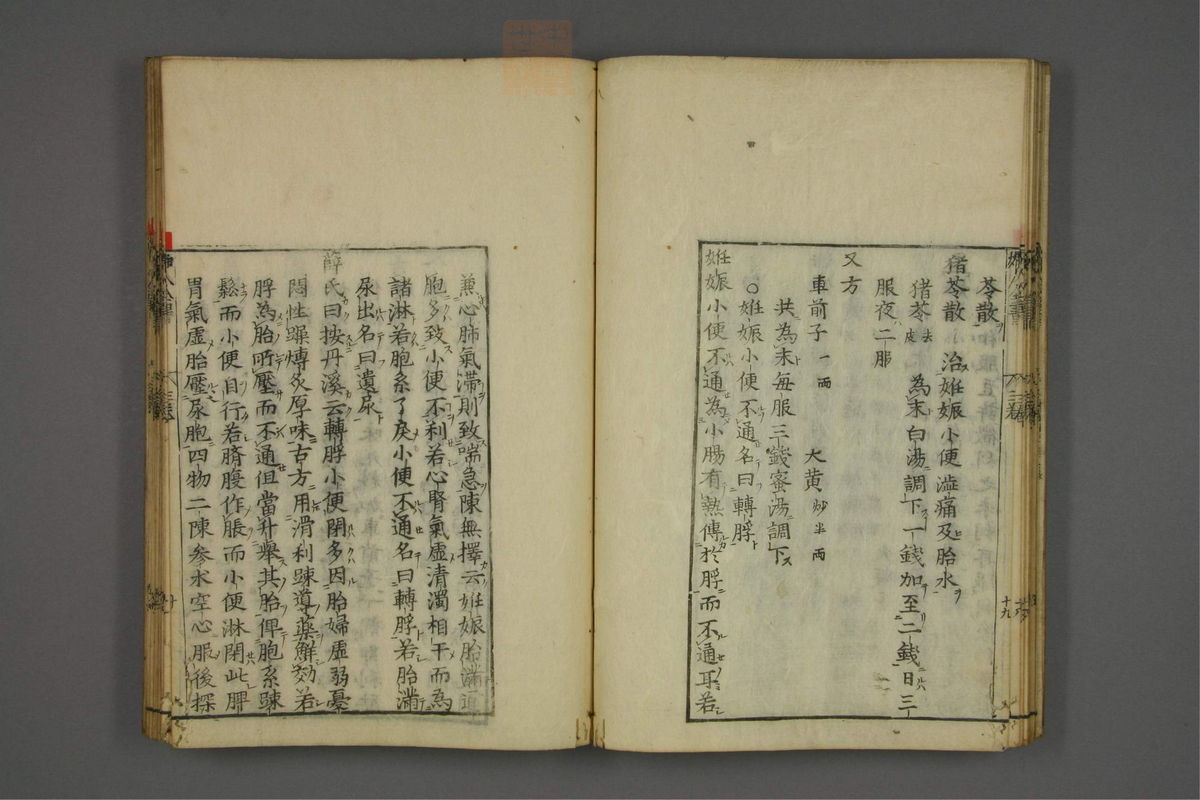 苓散
猪苓散 治姙娠小便澁痛及胎水
猪苓去皮 為末白湯調下一錢加至二錢日三
服夜二服
又方
車前子一兩 大黄炒半兩
共為末每服三錢蜜湯調下
○姙娠小便不通名曰轉脬
姙娠小便不通為小腸有熱傳於脬而不通耳若
兼心肺氣滯則致喘急陳無擇云姙娠胎滿逼
胞多致小便不利若心腎氣虛清濁相干而為
諸淋若胞系了戾小便不通名曰轉脬若胎滿
尿出名曰遺尿
薛氏曰按丹溪云轉脬小便閉多因胎婦虛弱憂
悶性躁煿炙厚味古方用滑利踈導藥鮮効若
脬為胎所壓而不通但當升舉其胎俾胞系踈
鬆而小便自行若臍腹作脹而小便淋閉此脾
胃氣虛胎壓尿胞四物二陳参朮空心服後探